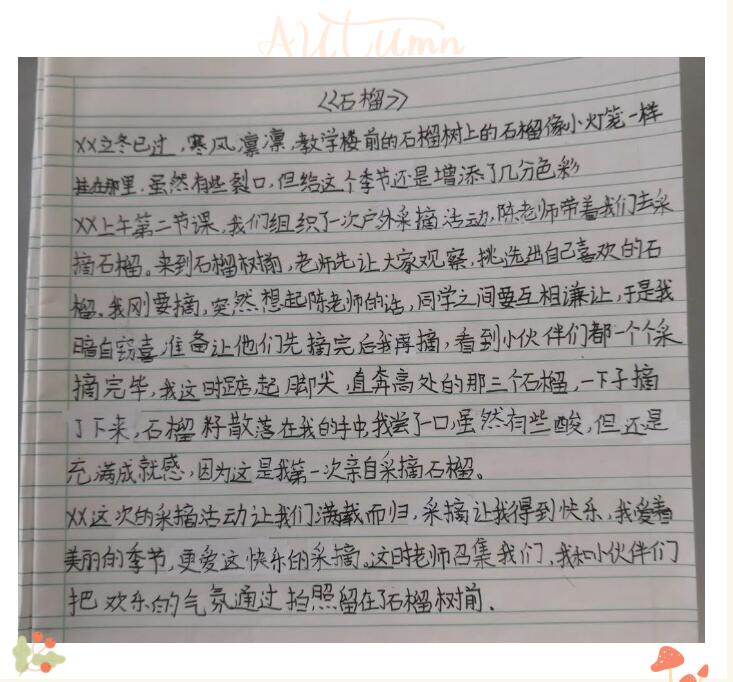 AUTUMN
《石榴》
XX立冬已过,寒风凛凛,教学楼前的石榴树上的石榴像小灯笼一样
挂在那里,虽然有些裂口,但给这个季节还是增添了几分色彩
XX上午第二节课,我们组织了一次户外采摘活动,陈老师带着我们去采
摘石榴。来到石榴树前,老师先让大家观察,挑选出自己喜欢的石
榴。我刚要摘,突然想起陈老师的话,同学之间要互相谦让,于是我
暗自窃喜准备让他们先摘完后我再摘,看到小伙伴们都一个个采
摘完毕,我这时踮起脚尖直奔高处的那三个石榴,一下子摘
了下来,石榴籽散落在我的手中,我尝了一口,虽然有些酸,但还是
充满成就感,因为这是我第一次亲自采摘石榴。
XX这次的采摘活动让我们满载而归,采摘让我得到快乐,我爱着
美丽的季节,更爱这快乐的采摘。这时老师召集我们,我和小伙伴们
把欢乐的气氛通过拍照留在了石榴树前.